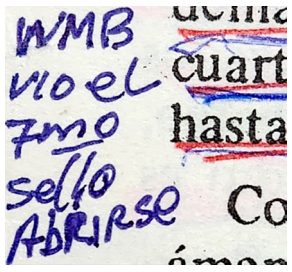 WMB
vio el
7mo
sello
AbRIRSE
cuart
hasta
Co